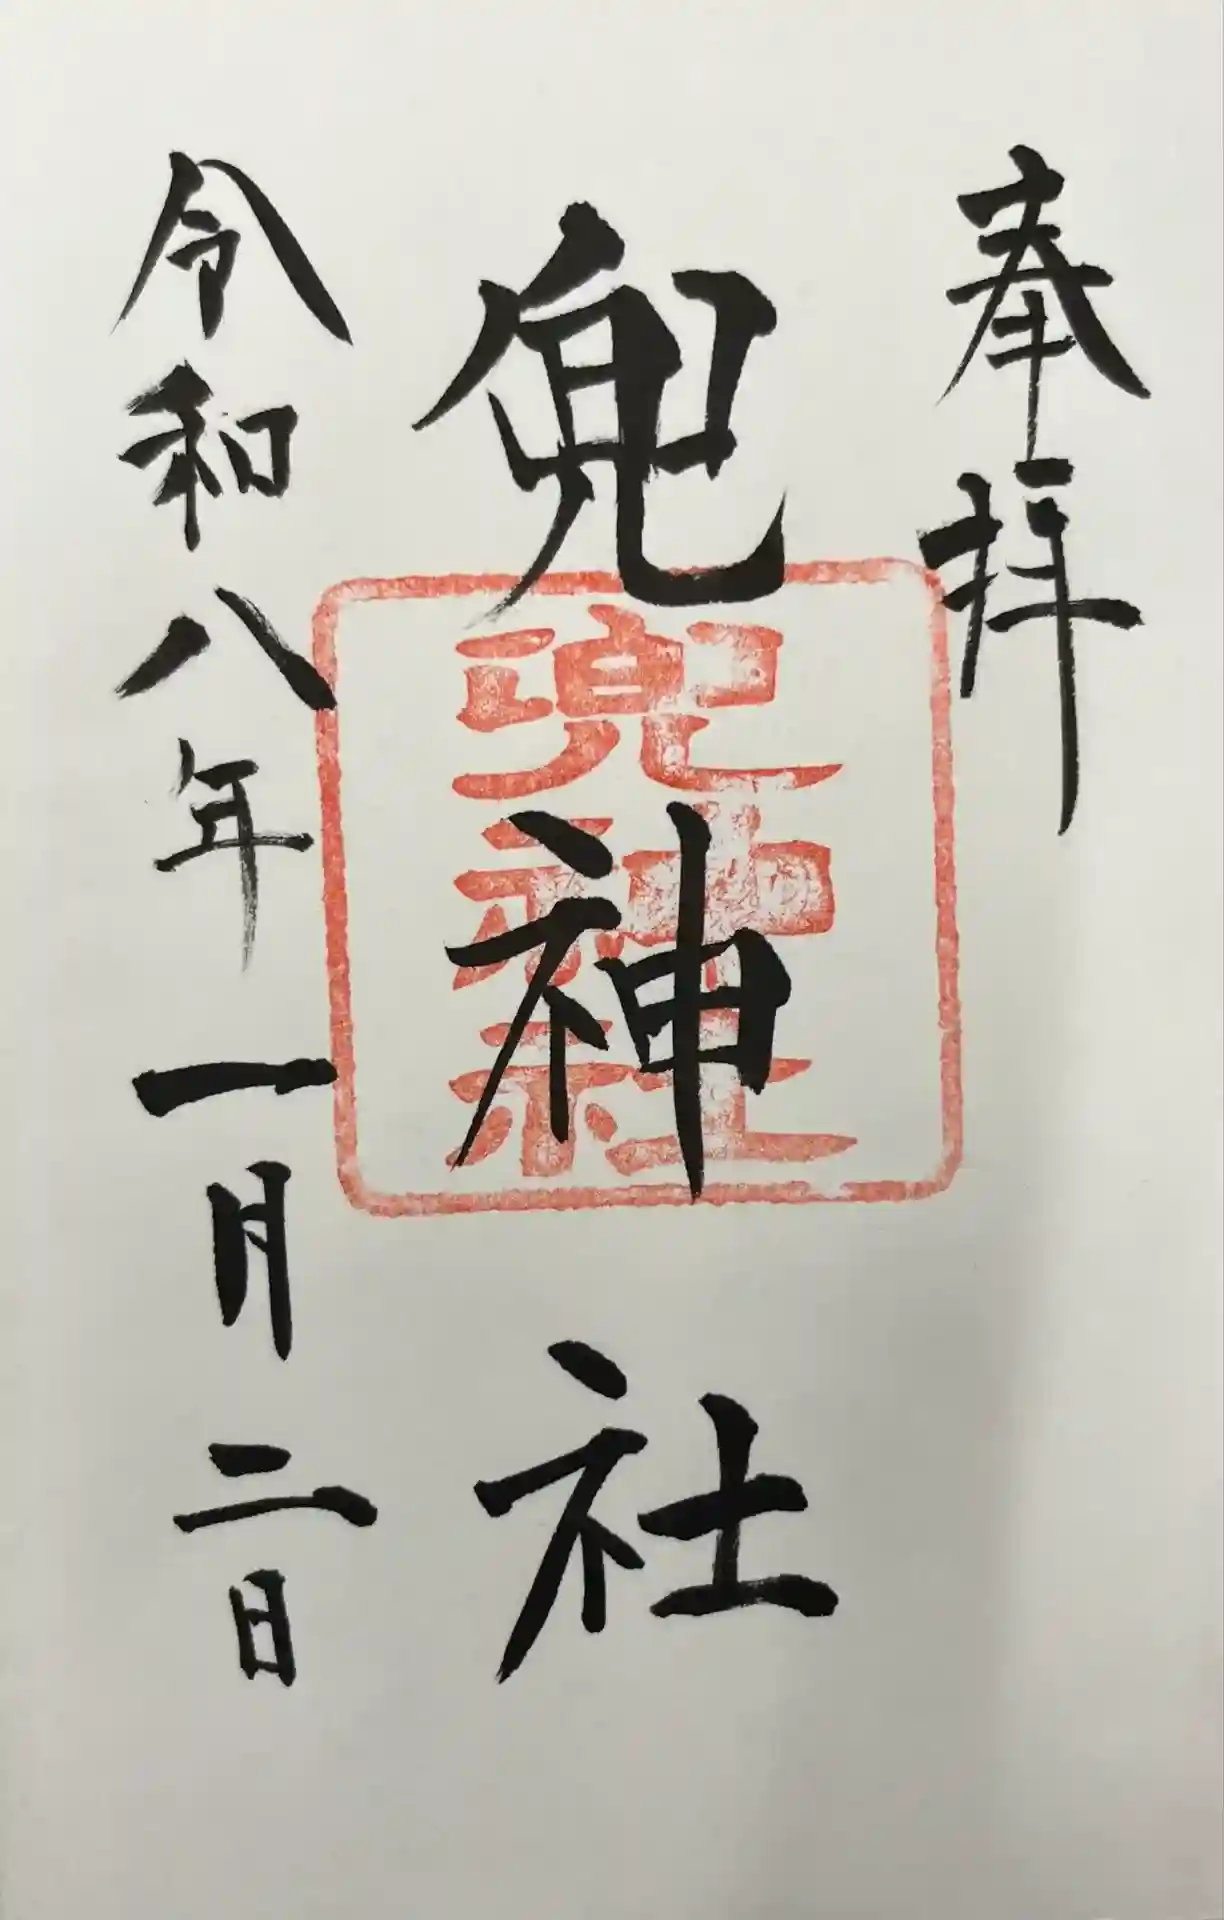 奉拝
兜神社
兜神社
令和八年一月二日